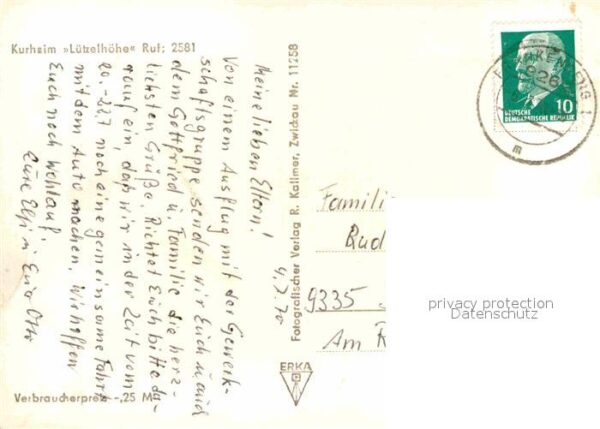 Kurheim »Lützelhöhe« Ruf: 2581
4.7.70
Meine lieben Eltern!
Von einem Ausflug mit der Gewerk-
schaftsgruppe senden wir Euch u. auch
dem Gottfried u. Familie die herz-
lichsten Grüße. Richtet Euch bitte da-
rauf ein, daß wir in der Zeit vom
20.-22.7 noch eine gemeinsame Fahrt
mit dem Auto machen. Wir hoffen
Euch noch wohlauf!
Eure Elfi u. Euer Otto
Verbraucherpreis -,25 M
Fotografischer Verlag R. Kallmer, Zwickau Nr. 11258
ERKA
10
DEUTSCHE
DEMOKRATISCHE REPUBLIK
Familie
9335
Am
privacy protection
Datenschutz